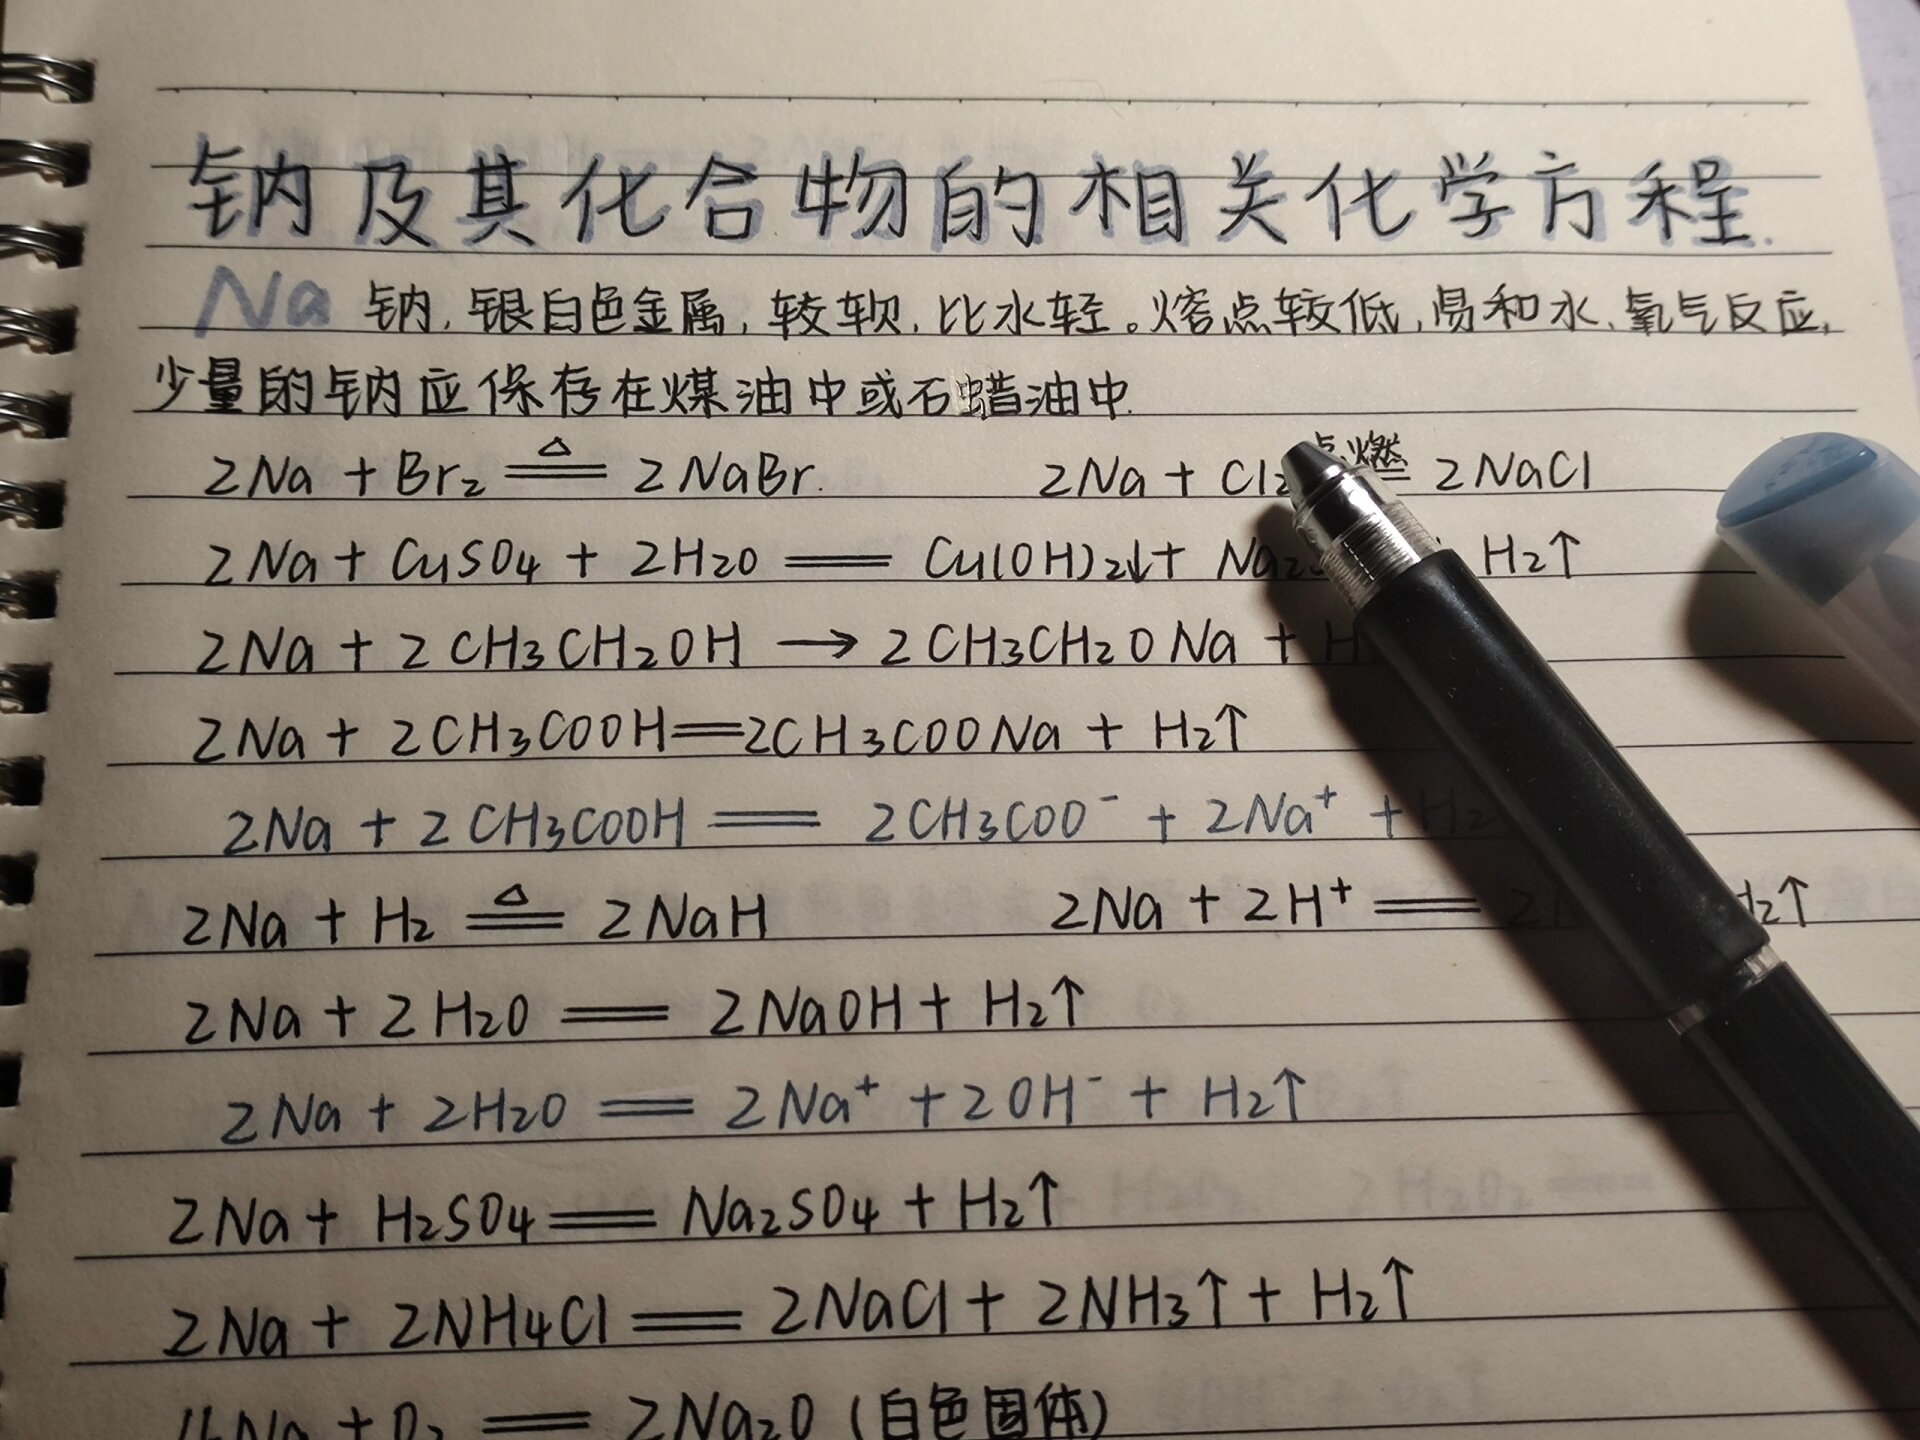 钠及其化合物的相关化学方程.
Na 钠,银白色金属,较软,比水轻。熔点较低,易和水、氧气反应,
少量的钠应保存在煤油中或石蜡油中.
2Na + Br₂ ≜ 2NaBr. 2Na + Cl₂ 点燃 = 2NaCl
2Na + CuSO₄ + 2H₂O == Cu(OH)₂↓ + Na₂ H₂↑
2Na + 2CH₃CH₂OH → 2CH₃CH₂ONa + H
2Na + 2CH₃COOH == 2CH₃COONa + H₂↑
2Na + 2CH₃COOH == 2CH₃COO⁻ + 2Na⁺ + H₂
2Na + H₂ ≜ 2NaH 2Na + 2H⁺ == 2N H₂↑
2Na + 2H₂O == 2NaOH + H₂↑
2Na + 2H₂O == 2Na⁺ + 2OH⁻ + H₂↑
2Na + H₂SO₄ == Na₂SO₄ + H₂↑
2Na + 2NH₄Cl == 2NaCl + 2NH₃↑ + H₂↑
4Na + O₂ == 2Na₂O (白色固体)